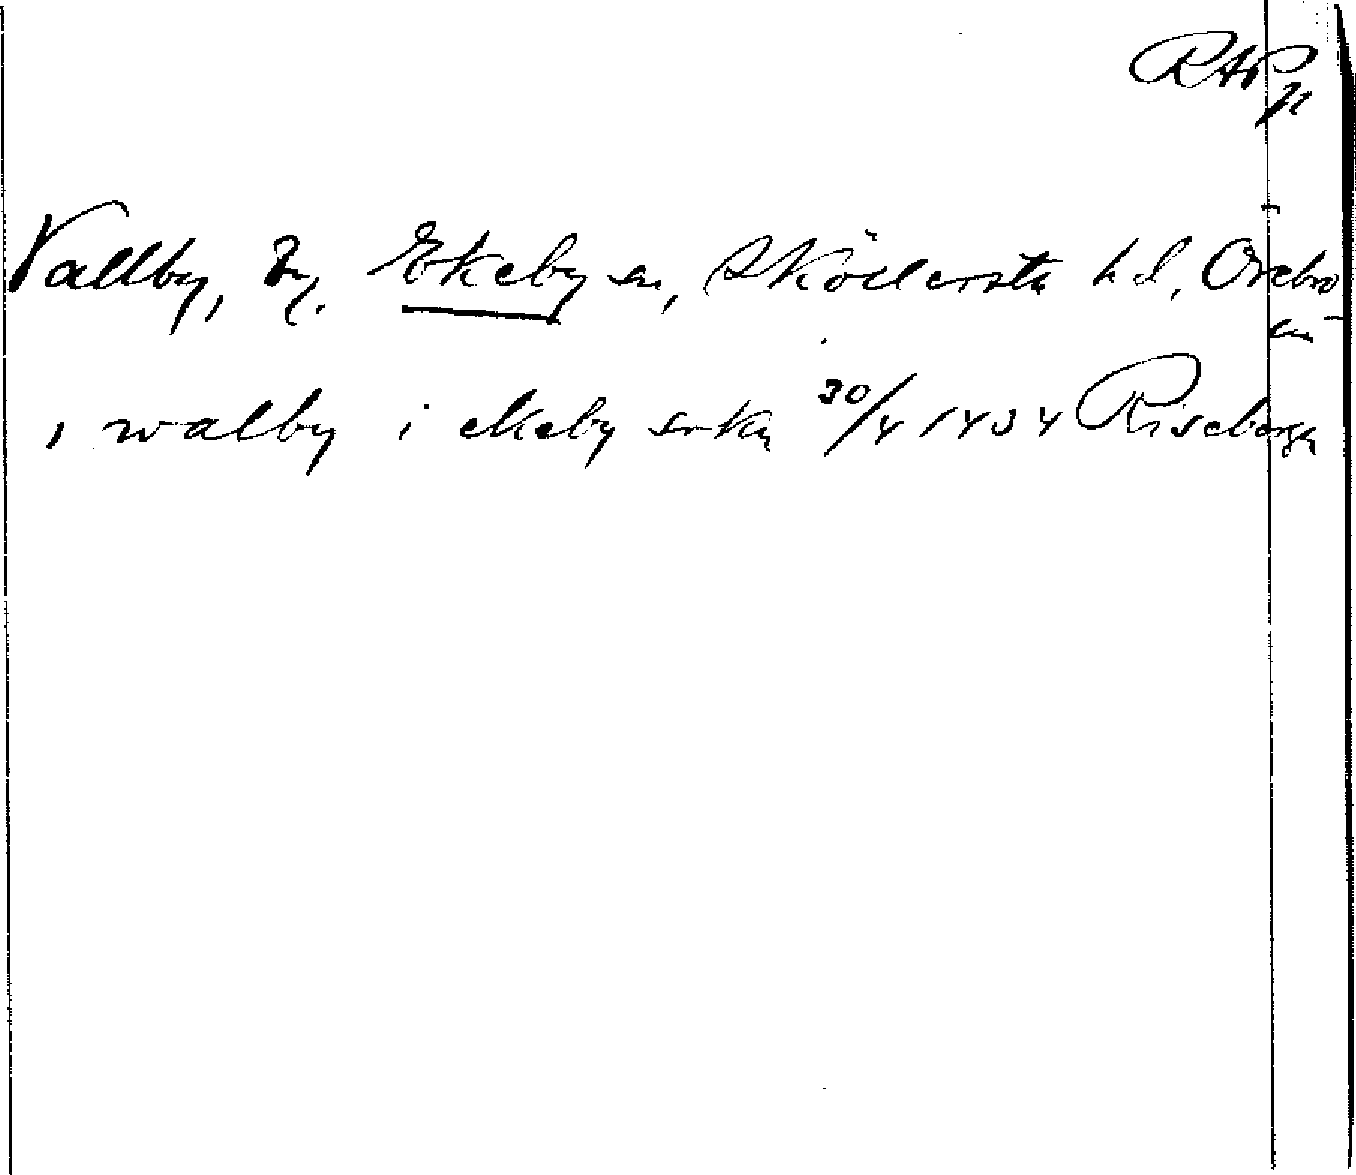 RAP
Vallby, by, Ekeby sn, Sköllersta hd, Örebro
län
i walby i ekeby sokn 30/4 1434 Riseberga